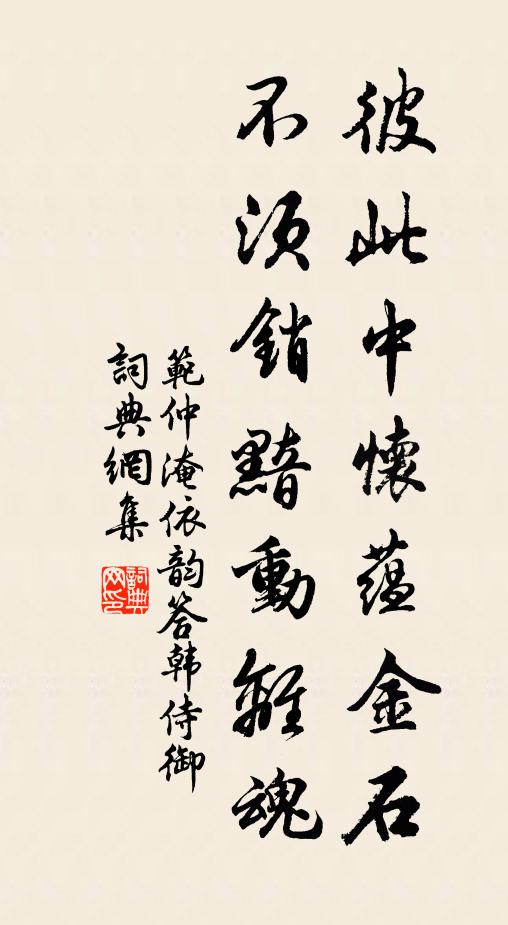 彼此中懷蘊金石
不須銷黯動離魂
範仲淹依韵答韓侍御
詞典網集
詞典网印